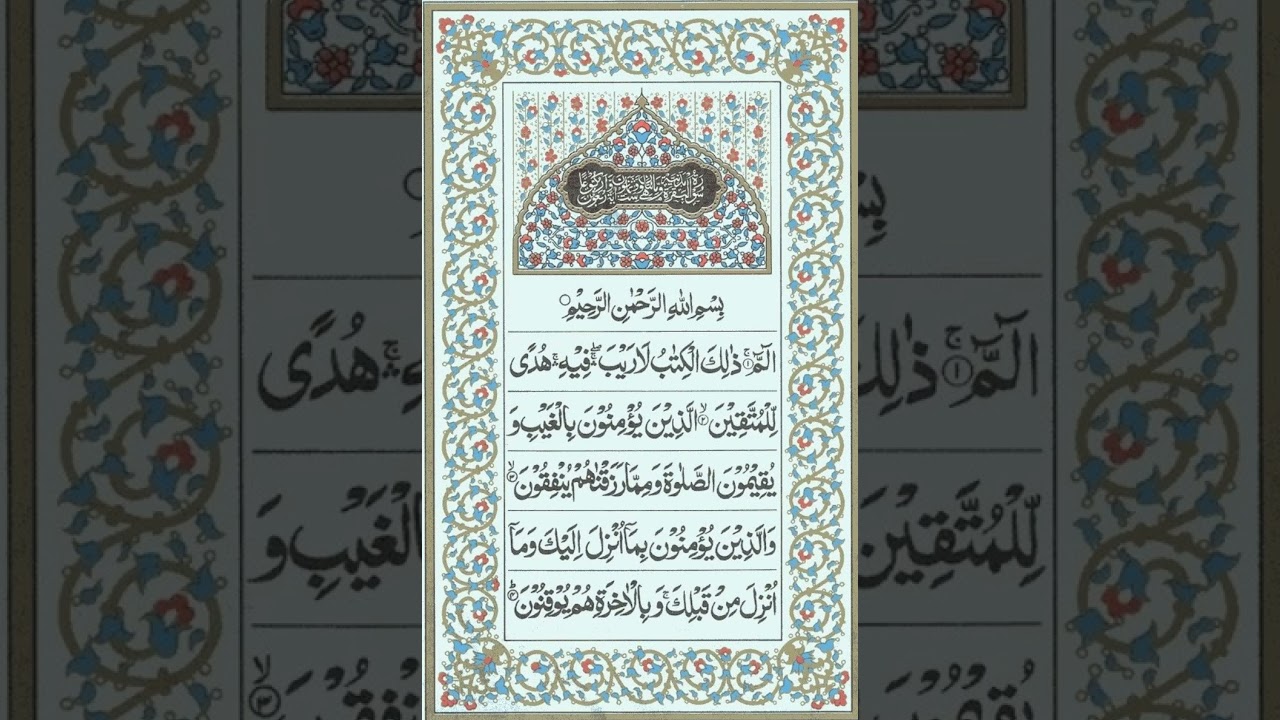 بِسْمِ اللهِ الرَّحْمٰنِ الرَّحِيْمِ
الٓمّٓ ۚ﴿۱﴾ ذٰلِكَ الْكِتٰبُ لَا رَيْبَ ۛۖ فِيْهِ ۛۚ هُدًى
لِّلْمُتَّقِيْنَ ۙ﴿۲﴾ الَّذِيْنَ يُؤْمِنُوْنَ بِالْغَيْبِ وَ
يُقِيْمُوْنَ الصَّلٰوةَ وَ مِمَّا رَزَقْنٰهُمْ يُنْفِقُوْنَ ۙ﴿۳﴾
وَالَّذِيْنَ يُؤْمِنُوْنَ بِمَاۤ اُنْزِلَ اِلَيْكَ وَمَاۤ
اُنْزِلَ مِنْ قَبْلِكَ ۚ وَ بِالْاٰخِرَةِ هُمْ يُوْقِنُوْنَ ؕ﴿۴﴾